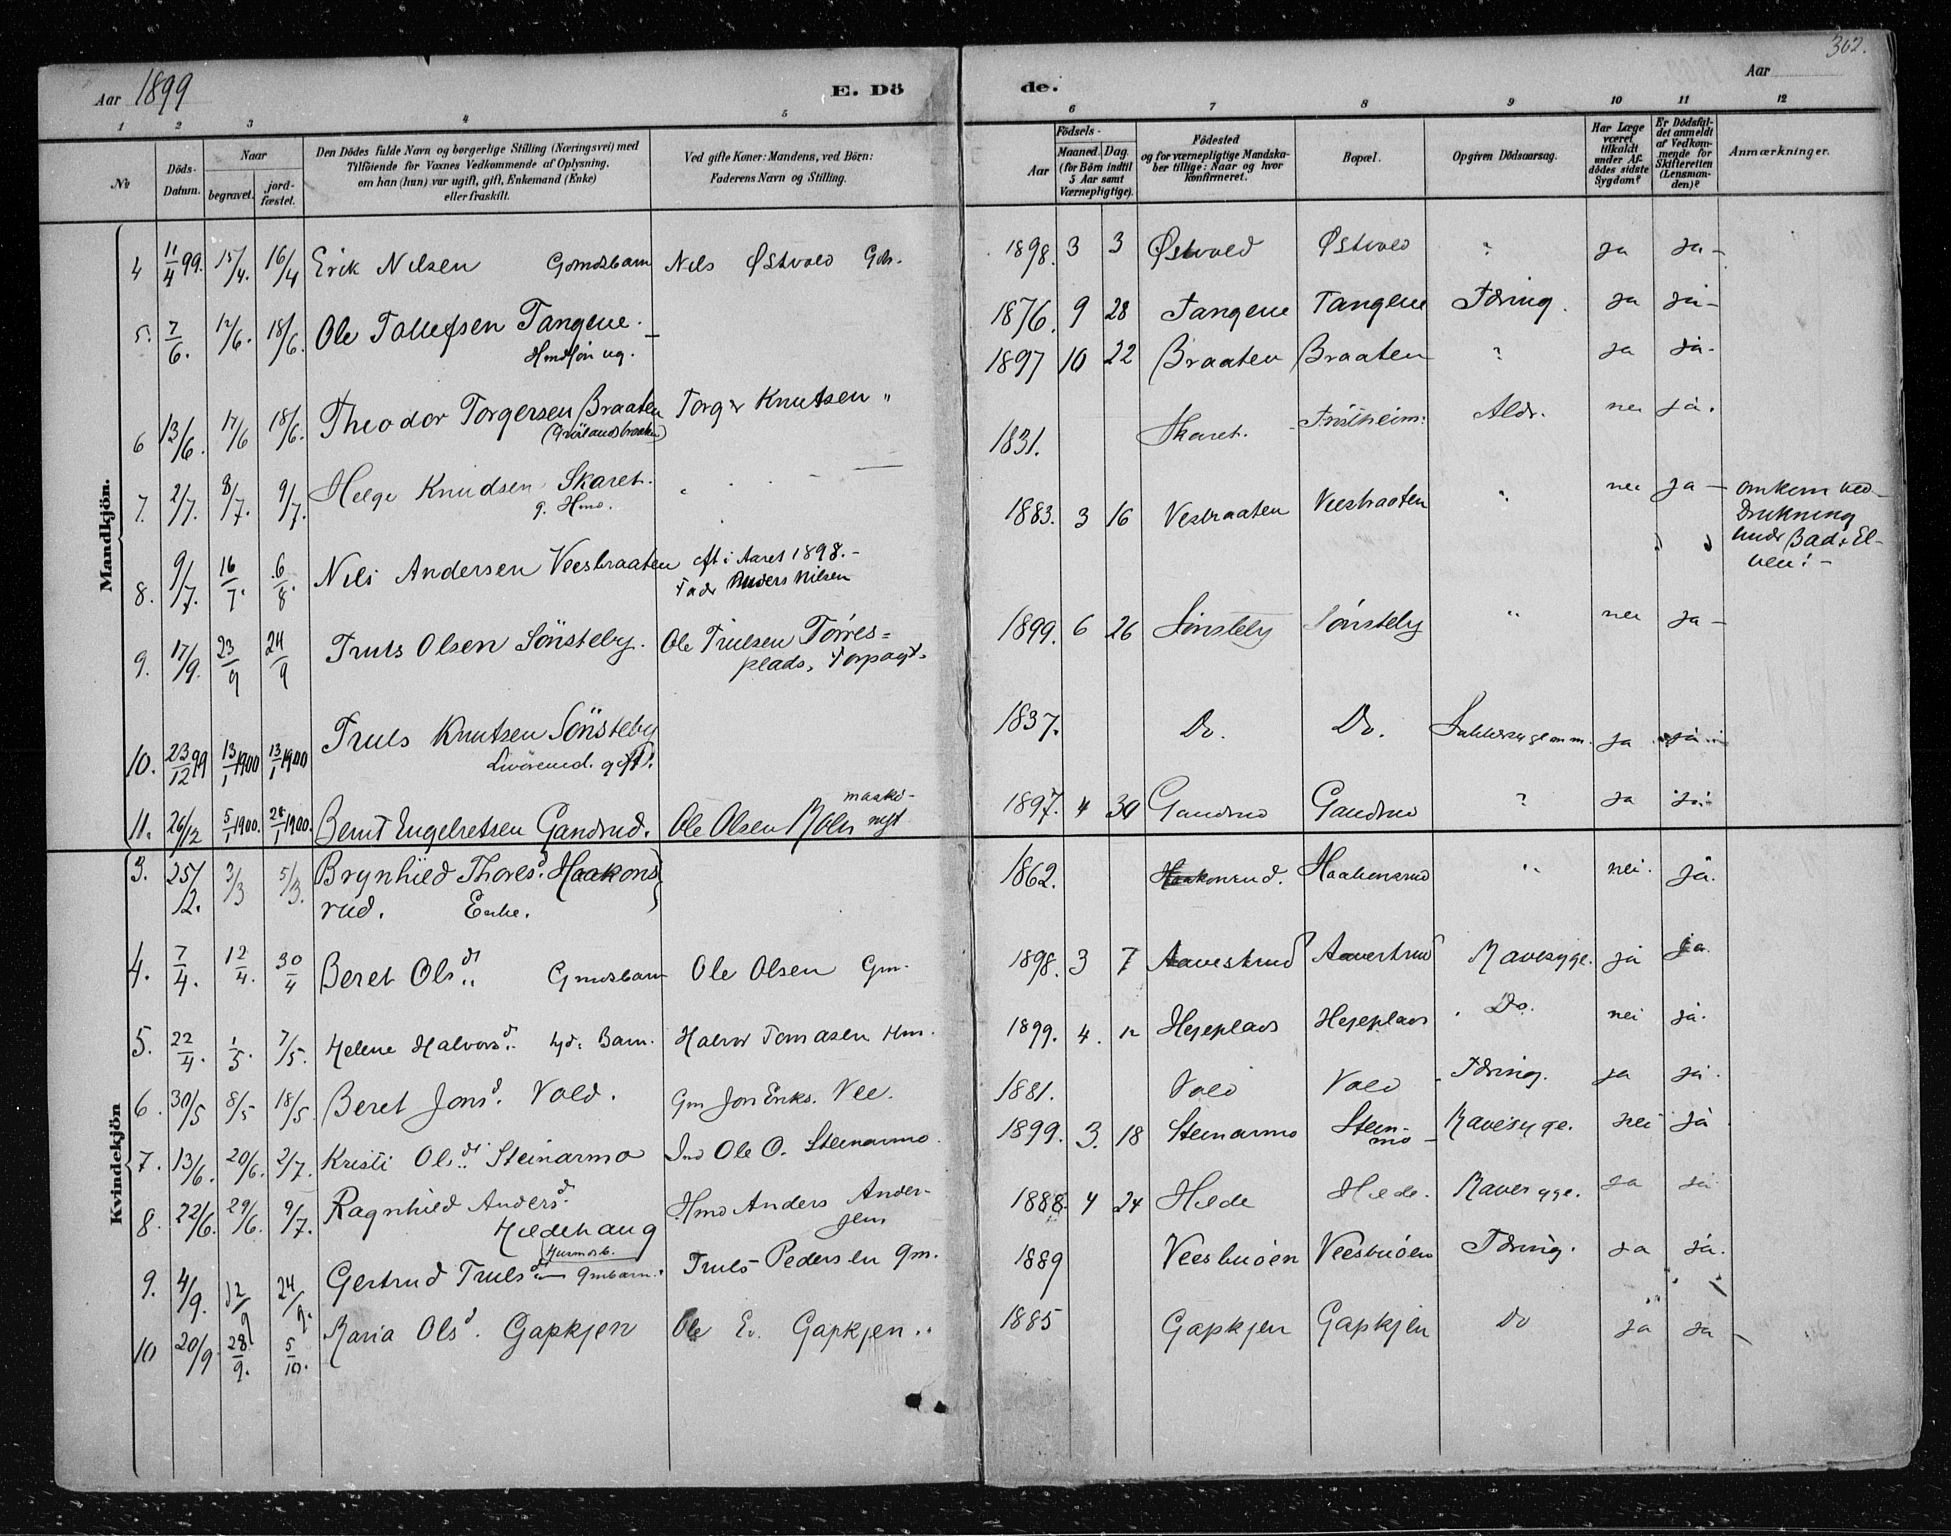 Aar 1899
E. Dö
de.
Aar
302.
1 2 3 4 5 6 7 8 9 10 11 12
No
Döds-Datum.
Naar
begravet.
jord-fæstet.
Den Dödes fulde Navn og borgerlige Stilling (Næringsvei) med
Tilföiende for Voxnes Vedkommende af Oplysning,
om han (hun) var ugift, gift, Enkemand (Enke)
eller fraskilt.
Ved gifte Koner: Mandens, ved Börn:
Faderens Navn og Stilling.
Födsels-
Aar
Maaned. Dag.
(for Börn indtil
5 Aar samt
Værnepligtige).
Födested
og for værnepligtige Mandska-
ber tillige: Naar og hvor
konfirmeret.
Bopæl.
Opgiven Dödsaarsag.
Har Læge
været
tilkaldt
under Af-
dödes sidste
Sygdom?
Er Dödsfal-
det anmeldt
af Vedkom-
mende for
Skifteretten
(Lensman-
den)?
Anmærkninger.
Mandkjön.
4 11/4 99. 15/4. 16/4 Erik Nilsen Gmdsbarn Nils Østvold 1898. 3 3 Østvold Østvold " ja ja -
5. 7/6. 12/6. 18/6. Ole Tollefsen Tangene. - 1876. 9 28 Tangene Tangene Tæring. ja ja -
ug.
6 13/6. 17/6 18/6. Theodor Torgersen Braaten Torger Knutsen " 1897 10 22 Braaten Braaten ? ja ja.
7. 2/7. 8/7. 9/7. Helge Knudsen Skaret. 1831. Skaret. Aldr. nei ja.
g. Hmd.
8. 9/7. 16/7. 6/8. Nils Andersen Veesbraaten cft i Aaret 1898. - 1883. 3 16 Vesbraaten Veesbraaten " nei ja - omkom ved
Fadr Anders Nilsen
Drukning
undr Bad i El-
ven! -
9. 17/9. 23/9 24/9 Truls Olsen Sönsteby. Ole Trulsen Törres= 1899. 6 26 Sönsteby Sönsteby " nei ja -
plads, Forpagt.
10. 23/12 99 13/1 1900 13/1 1900 Truls Knutsen Sönsteby 1837. Do. Do. ja ja
gift.
11. 26/12 5/1 1900. 28/1 1900. Bernt Engebretsen Gandrud. Ole Olsen maski-
nist 1897. 4 30 Gandrud Gandrud ? ja ja
Kvindekjön
3. 25/2. 3/3 5/3. Brynhild Thoresd. Haakons 1862. Haakonrud. Haakensrud " nei. ja.
rud. Enke.
4. 7/4. 12/4. 30/4 Beret Olsdt. Gmdsbarn Ole Olsen Gm. 1898. 3 7 Aavestrud Aavestrud Mavesyge. ja ja.
5. 22/4. 1/5. 7/5. Helene Halvorsd. Barn. Halvor Tomasen Hm. 1899. 4. 12 Hejeplads Hejeplads Do. nei ja.
6. 30/5 8/5 18/5 Beret Jonsd. Vold. Gm Jon Eriks. Vee. 1881. Vold Vold Tæring. ja ja.
7. 13/6. 20/6. 2/7. Kristi Olsdt. Steinarmo Ind Ole O. Steinarmo. 1899. 3. 18 Steinarmo Stein-
mo - Mavesyge. nei ja
8. 22/6. 29/6. 9/7. Ragnhild Andersd. Hmd Anders Ander- 1888. 4 24 Hilde Hilde. Mavesyge. ja ja
Hildehaug sen
9. 4/9. 12/9 24/9. Gertrud Trulsd. Gmbarn. Truls Pedersen Gm. 1889 Veesbuöen Veesbuöen Tæring. ja ja.
10 20/9. 28/9. 5/10. Maria Olsd. Gapkjen Ole Er. Gapkjen.. 1885 Gapkjen Gapkjen Do ja ja -